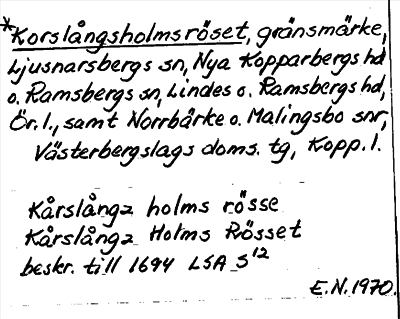 *Korslångsholmsröset, gränsmärke,
Ljusnarsbergs sn, Nya Kopparbergs hd
o. Ramsbergs sn, Lindes o. Ramsbergs hd,
Ör. l., samt Norrbärke o. Malingsbo snr,
Västerbergslags doms. tg, Kopp. l.
Kårslångz holms rösse
Kårslångz Holms Rösset
beskr. till 1694 LSA S¹²
E.N. 1970.